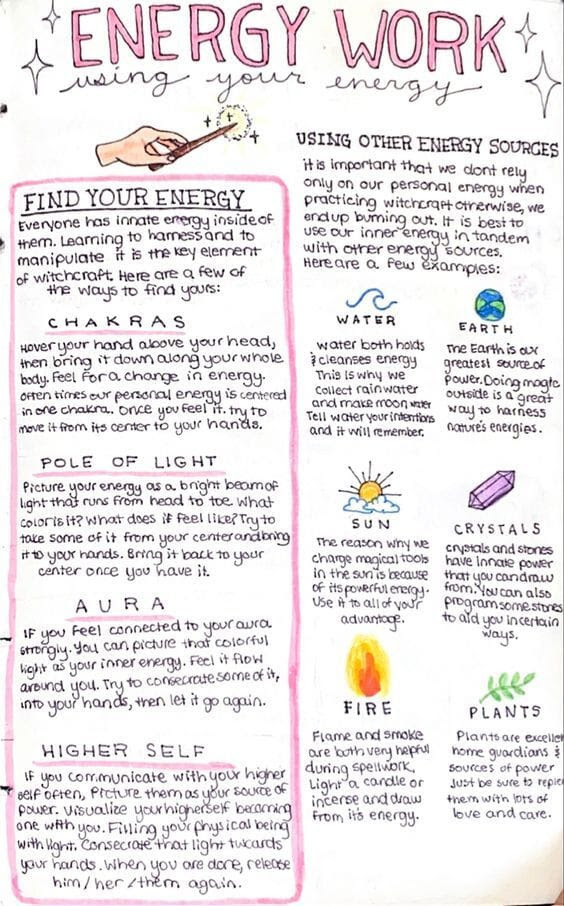 ENERGY WORK
using your energy
FIND YOUR ENERGY
Everyone has innate energy inside of
them. Learning to harness and to
manipulate it is the key element
of witchcraft. Here are a few of
the ways to find yours:
CHAKRAS
Hover your hand above your head,
then bring it down along your whole
body. Feel for a change in energy.
often times our personal energy is centered
in one chakra. Once you feel it. try to
move it from its center to your hands.
POLE OF LIGHT
Picture your energy as a bright beam of
light that runs from head to toe. What
color is it? What does it feel like? Try to
take some of it from your center and bring
it to your hands. Bring it back to your
center once you have it.
AURA
IF you feel connected to your aura
strongly. You can picture that colorful
light as your inner energy. Feel it flow
around you. Try to consecrate some of it,
into your hands, then let it go again.
HIGHER SELF
IF you communicate with your higher
self often, Picture them as your source of
power. Visualize your higherself becoming
one with you. Filling your physical being
with light. Consecrate that light towards
your hands. When you are done, release
him/her/them again.
USING OTHER ENERGY SOURCES
it is important that we dont rely
only on our personal energy when
practicing witchcraft otherwise, we
end up burning out. It is best to
use our inner energy in tandem
with other energy sources.
Here are a few examples:
WATER
water both holds
& cleanses energy
This is why we
collect rainwater
and make moon water
Tell water your intentions
and it will remember.
EARTH
The Earth is our
greatest source of
power. Doing magic
outside is a great
way to harness
nature's energies.
SUN
The reason why we
charge magical tools
in the sun is because
of its powerful energy.
Use it to all of your
advantage.
CRYSTALS
crystals and stones
have innate power
that you can draw
from. You can also
program some stones
to aid you in certain
ways.
FIRE
Flame and smoke
are both very helpful
during spellwork.
Light a candle or
incense and draw
from it's energy.
PLANTS
Plants are
home guardians &
sources of power
Just be sure to
them with lots of
love and care.